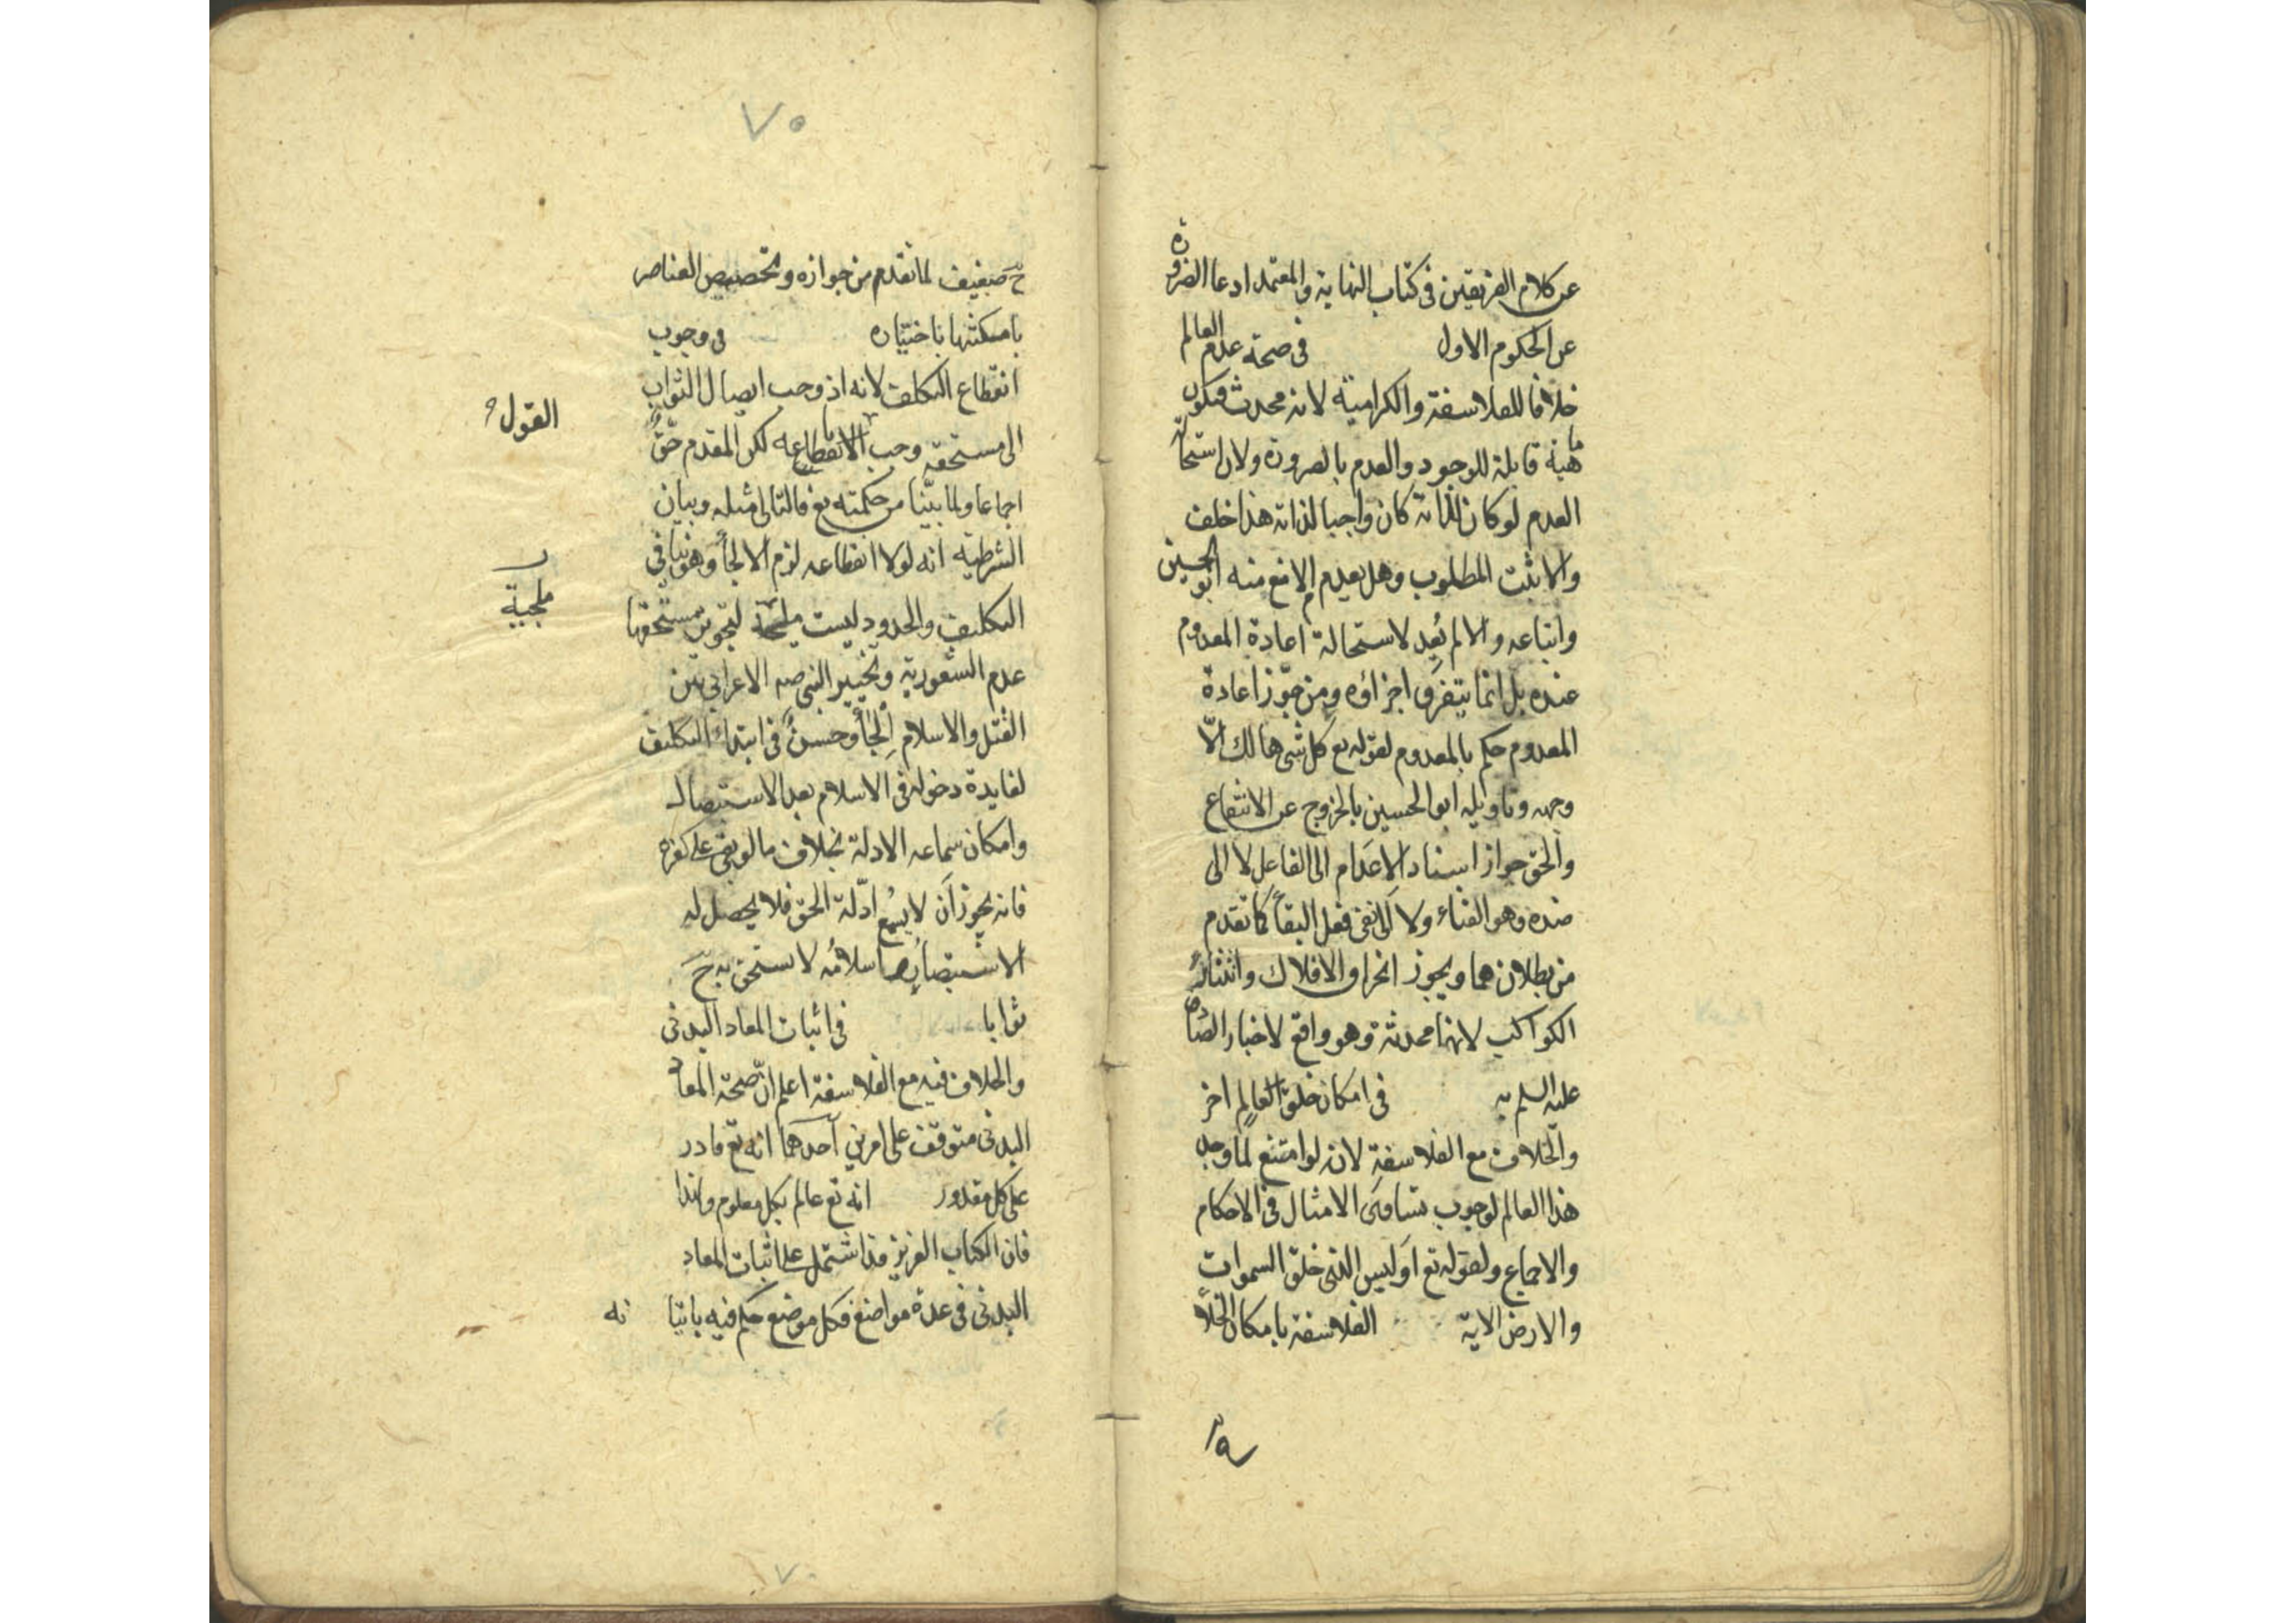 عن كلام الفريقين فى كتاب النهاية والمعتمد ادعا الضرورة
عن الحكوم الاول فى صحة عدم العالم
خلافا للفلاسفة والكرامية لانه محدث فيكون
ماهية قابلة للوجود والعدم بالضرورة ولان استحالة
العدم لو كان لذاته كان واجبا لذاته هذا خلف
والا ثبت المطلوب وهل يعدم ام لا منع منه ابو الحسين
واتباعه والا لم يُعد لاستحالة اعادة المعدوم
عنده بل انما يتفرق اجزاؤه ومن جوّز اعادة
المعدوم حكم بالمعدوم لقوله تع كل شى هالك الّا
وجهه وتاويله ابو الحسين بالخروج عن الانتفاع
والحق جواز اسناد الاعدام الى الفاعل لا الى
ضده وهو الفناء ولا الى نفى فعل البقاء كما تقدم
من بطلانهما ويجوز انخراق الافلاك وانتثار
الكواكب لانها محدثة وهو واقع لاخبار الصادق
عليه السلم به فى امكان خلق العالم اخر
والخلاف مع الفلاسفة لانه لو امتنع لما وجد
هذا العالم لوجوب تساوى الامثال فى الاحكام
والاجماع ولقوله تع اَوليس الذى خلق السموات
والارض الاية الفلاسفة بامكان الخلاء
٧٠
حَ ضعيف لما تقدم من جوازه وتخصيص العناصر
بامكنتها باختياره فى وجوب
انقطاع التكلف لانه اذ وجب ايصال الثواب
الى مستحقه وجب انقطاعه لكن المقدم حقّ
القول
اجماعا ولما بيّنا من حكمته تع فالتالى مثله وبيان
الشرطية انه لولا انقطاعه لزم الالجاء وهو ينافى
التكليف والحدود ليست ملجئة لتجويز مستحقها
ملجية
عدم الشعور به وتخيير النبى صه الاعرابى بين
القتل والاسلام اِلجاء وحسن فى ابتداء التكليف
لفايدة دخوله فى الاسلام بعد الاستبصار
وامكان سماعه الادلة بخلاف ما لو بقى على كفره
فانه يجوز اَن لا يسمع ادّلة الحق فلا يحصل له
الاستبصار اسلامُه لا يستحق به حَ
ثوابا فى اثبات المعاد البدنى
والخلاف فيه مع الفلاسفة اعلم انّ صحة المعاد
البدنى متوقف على امرين اَحدهما انه تع قادر
على كل مقدور انه تع عالم بكل معلوم ولهذا
فان الكتاب العزيز قد اشتمل على اثبات المعاد
البدنى فى عدة مواضع فكل موضع حكم فيه باثبا
ته
٧٠